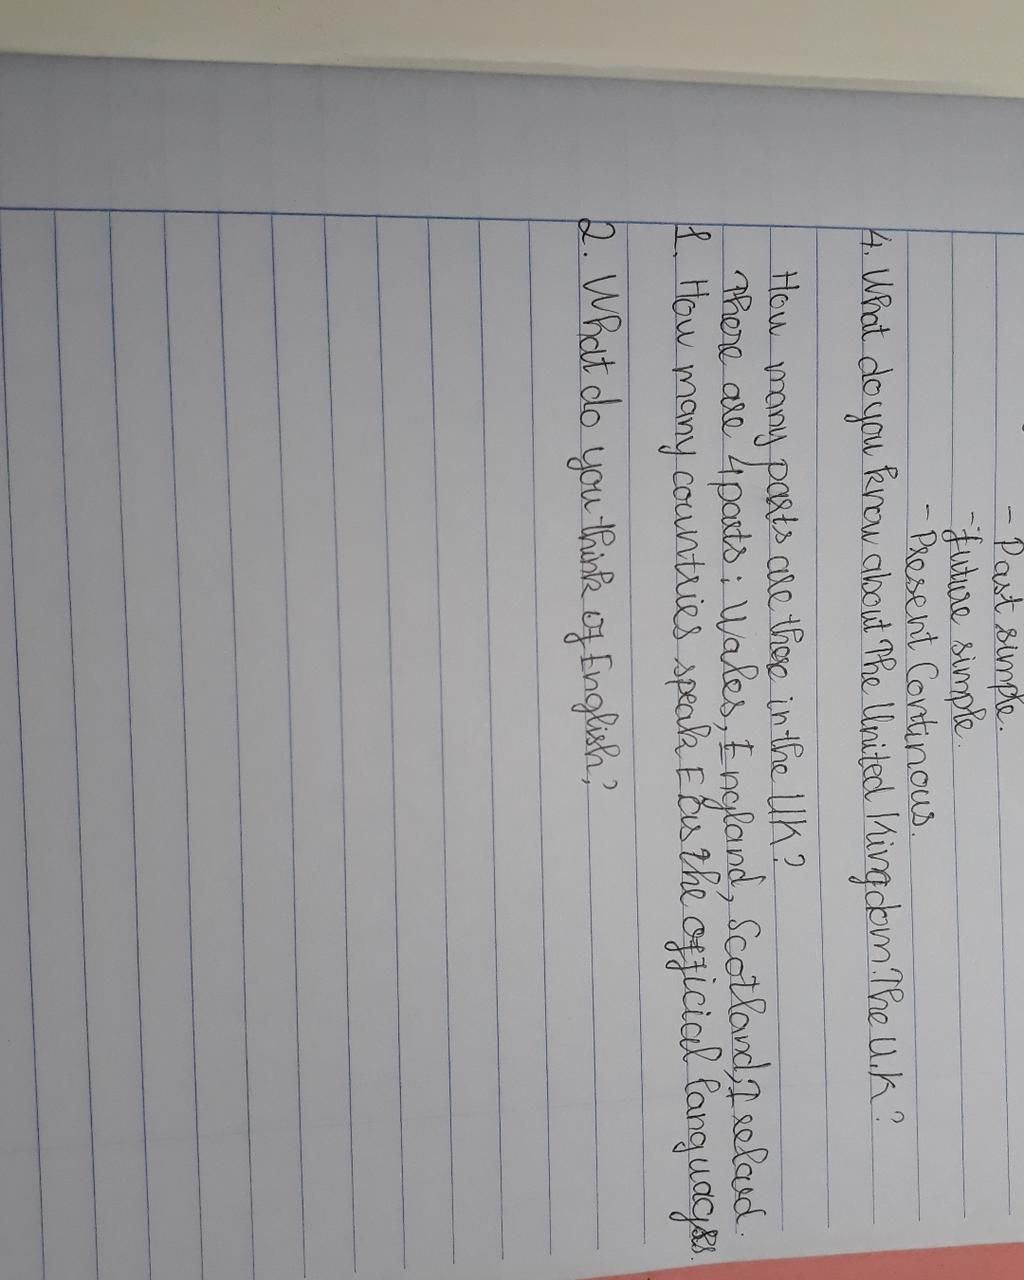 - Past simple.
- Future simple.
- Present Continous.
4. What do you know about The United Kingdom. The U.K?
How many parts are there in the UK?
There are 4 parts: Wales, England, Scotland, Ireland.
1. How many countries speak E is the official languages.
2. What do you think of English?